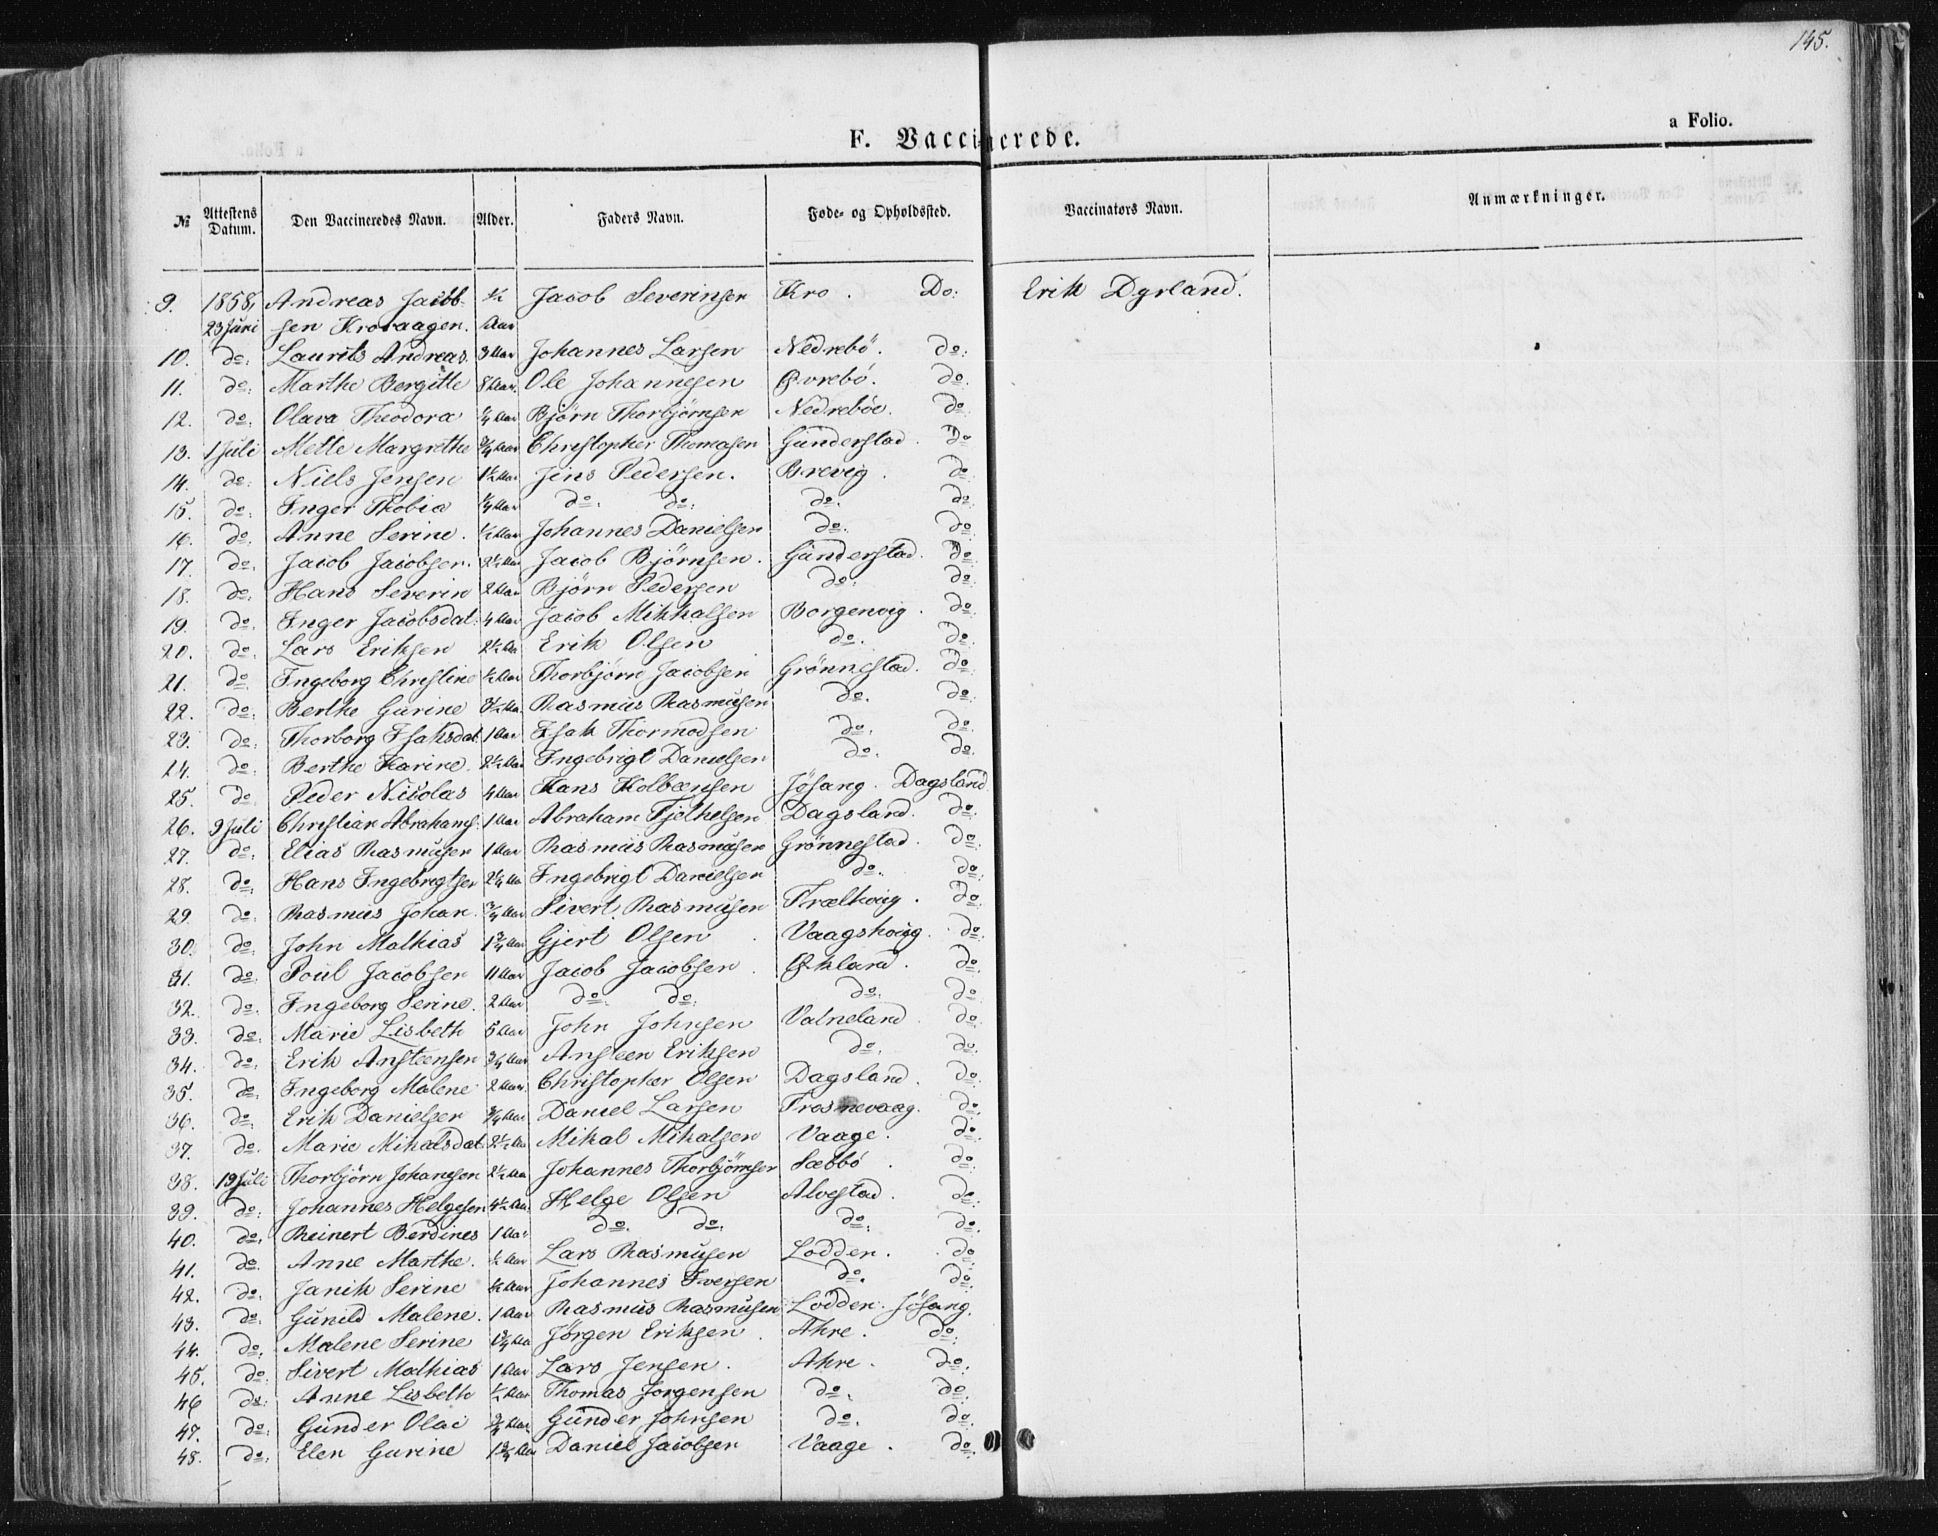 145.
a Folio.
F. Vaccinerede.
№ Attestens Datum. Den Vaccineredes Navn. Alder. Faders Navn. Føde- og Opholdssted. Vaccinators Navn. Anmærkninger.
9. 1858, Andreas Jacob- ½ Jacob Severinsen Kro. Do: Erik Dyrland.
23 Juni sen Krovaagen. Aar
10. do: Laurits Andreas 3 Aar Johannes Larsen Nedrebö. do:
11. do: Marthe Bergitte 8 Aar. Ole Johannesen Øvrebö. do.
12. do: Olava Theodora Aar Björn Thorbjörnsen Nedreböe. do
13. 1 Juli Mette Margrethe ¾ Aar Christopher Thomasen Gunderstad. do
14. do: Niels Jensen 1½ Aar Jens Pedersen. Brevig. do
15. do: Inger Thobia ¼ Aar do: do: do. do
16. do: Anne Serine. ½ Aar Johannes Danielsen do. do
17. do. Jacob Jacobsen. 2½ Aar Jacob Björnsen. Gunderstad. do
18. do: Hans Severin 2 Aar Björn Pedersen do: do
19. do. Inger Jacobsdat. 4 Aar Jacob Mikkalsen Borgenvig. do
20. do. Lars Eriksen 2½ Aa Erik Olsen do. do.
21. do. Ingeborg Christine ½ Aar Thorbjörn Jacobsen Grönnestad. do
22. do: Berthe Gurine 3½ Aa. Rasmus Rasmusen do. do.
23. do: Thorborg Isaksdat. 1 Aar Isak Thormodsen do. do.
24. do: Berthe Karine. 2½ Aar Ingebrigt Danielsen do. do.
25. do Peder Nicolas 4 Aar Hans Kolbænsen Jösang. Dagsland
26. 9 Juli Christian Abrahams. 1 Aar Abraham Tjelkelsen Dagsland. do.
27. do: Elias Rasmusen 1 Aar Rasmus Rasmusen Grönnestad. do:
28. do: Hans Ingebrigtsen 2¼ Aa Ingebrigt Danielsen do. do.
29. do: Rasmus Johan. ¾ Aar Sivert Rasmusen Trælkvig. do
30. do: John Mathias 1¾ Aar Gjert Olsen Vaagshoug. do:
31. do: Poul Jacobsen 11 Aar Jacob Jacobsen Økland. do.
32. do: Ingeborg Serine. 2 Aar do: do: do. do
33. do: Marie Lisbeth 5 Aar John Johnsen Valneland. do.
34. do: Erik Ansteensen ¾ Aar Ansteen Eriksen do. do:
35. do Ingeborg Malene 2 Aar Christopher Olsen Dagsland. do.
36. do: Erik Danielsen ¾ Aar Daniel Larsen Trosnevaag. do.
37. do. Marie Mikalsdat. 2½ Aa Mikal Mikalsen Vaage. do.
38. 19 Juli Thorbjörn Johansen 2½ Aa Johannes Thorbjörnsen Sæbbö. do.
39. do: Johannes Helgesen 4½ Aa. Helge Olsen Alvestad. do:
40. do: Reinert Berdines 1 Aar do. do. do: do.
41. do. Anne Marthe. ½ Aar Lars Rasmusen Lodden. do
42. do: Janik Serine ½ Aar Johannes Iversen do. do.
43. do: Gunild Malene. 1 Aar Rasmus Rasmusen Lodden. Jösang.
44. do: Malene Serine 1¾ Aa Jörgen Eriksen. Ahre. do:
45. do Sivert Mathias 1 Aar Lars Jensen. Ahre. do.
46 do: Anne Lisbeth ½ Aar Thomas Jorgensen do. do.
47. do: Gunder Olai ¾ Aar Gunder Johnsen do. do.
48. do: Elen Gurine 1¾ Aar Daniel Jacobsen Vaage. do.